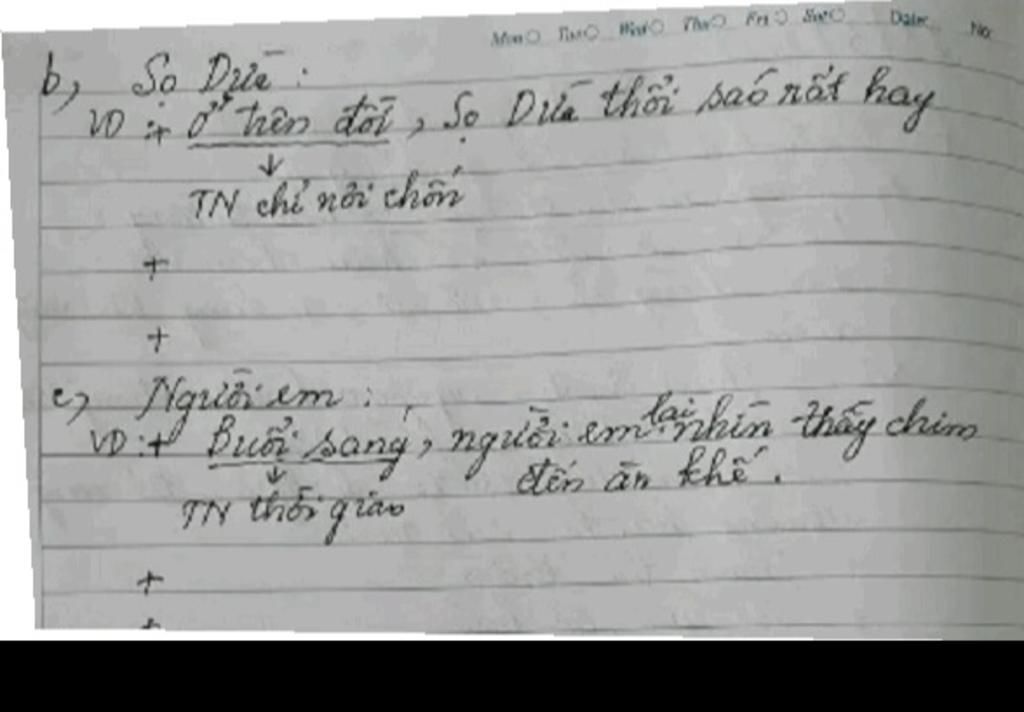 Mon Tue Wed Thu Fri Sat Date No
b, Sọ Dừa:
VD: + Ở trên đồi, Sọ Dừa thổi sáo rất hay
↓
TN chỉ nơi chốn
+
+
c, Người em:
VD: + Buổi sáng, người em lại nhìn thấy chim
↓ đến ăn khế.
TN thời gian
+
+